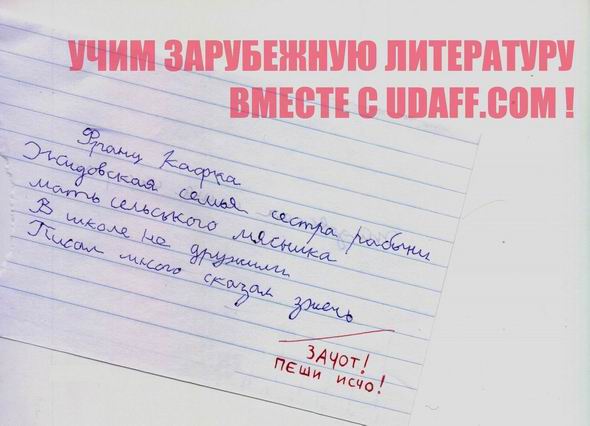 УЧИМ ЗАРУБЕЖНУЮ ЛИТЕРАТУРУ
ВМЕСТЕ С UDAFF.COM !
Франц Кафка
Жидовская семья сестра рабыни
мать сельського мясника
В школе не дружили
Писал много сказал зжечь
ЗАЧОТ!
ПЕШИ ИСЧО!